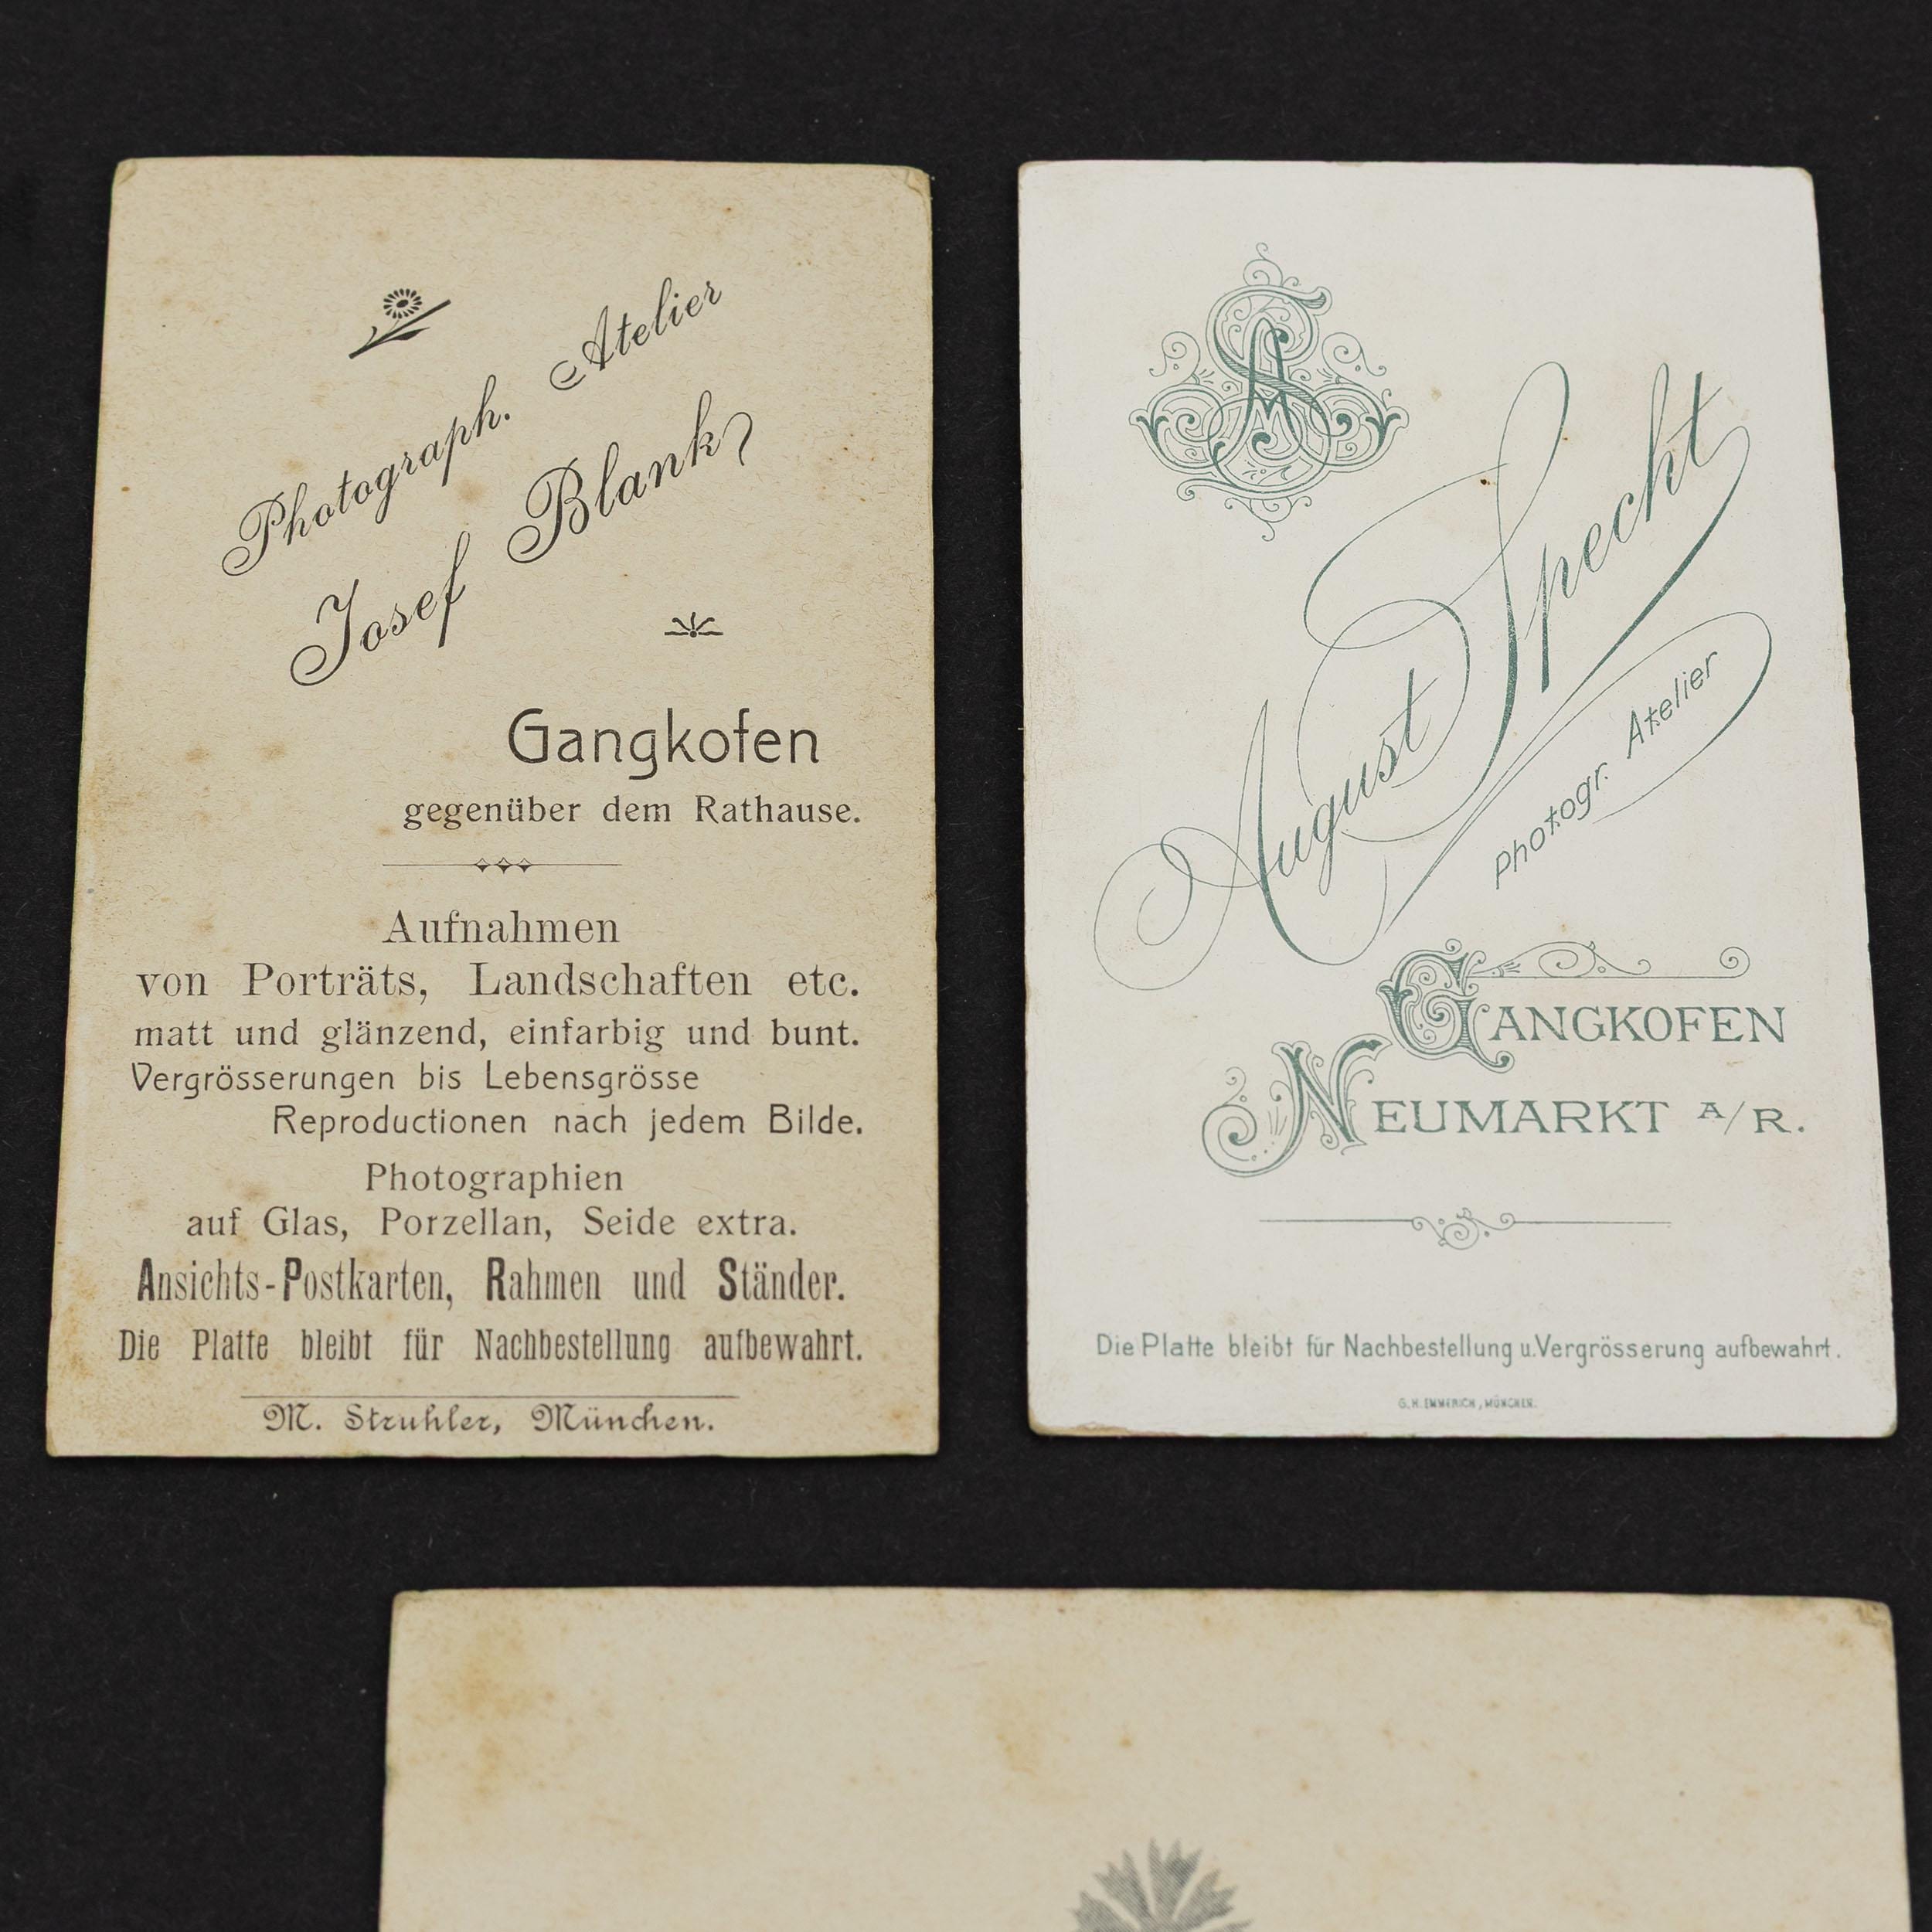 Photograph. Atelier
Josef Blank
Gangkofen
gegenüber dem Rathause.
Aufnahmen
von Porträts, Landschaften etc.
matt und glänzend, einfarbig und bunt.
Vergrösserungen bis Lebensgrösse
Reproductionen nach jedem Bilde.
Photographien
auf Glas, Porzellan, Seide extra.
Ansichts-Postkarten, Rahmen und Ständer.
Die Platte bleibt für Nachbestellung aufbewahrt.
M. Struhler, München.
AS
August Specht
Photogr. Atelier
GANGKOFEN
NEUMARKT A/R.
Die Platte bleibt für Nachbestellung u. Vergrösserung aufbewahrt.
G. H. EMMERICH, MÜNCHEN.